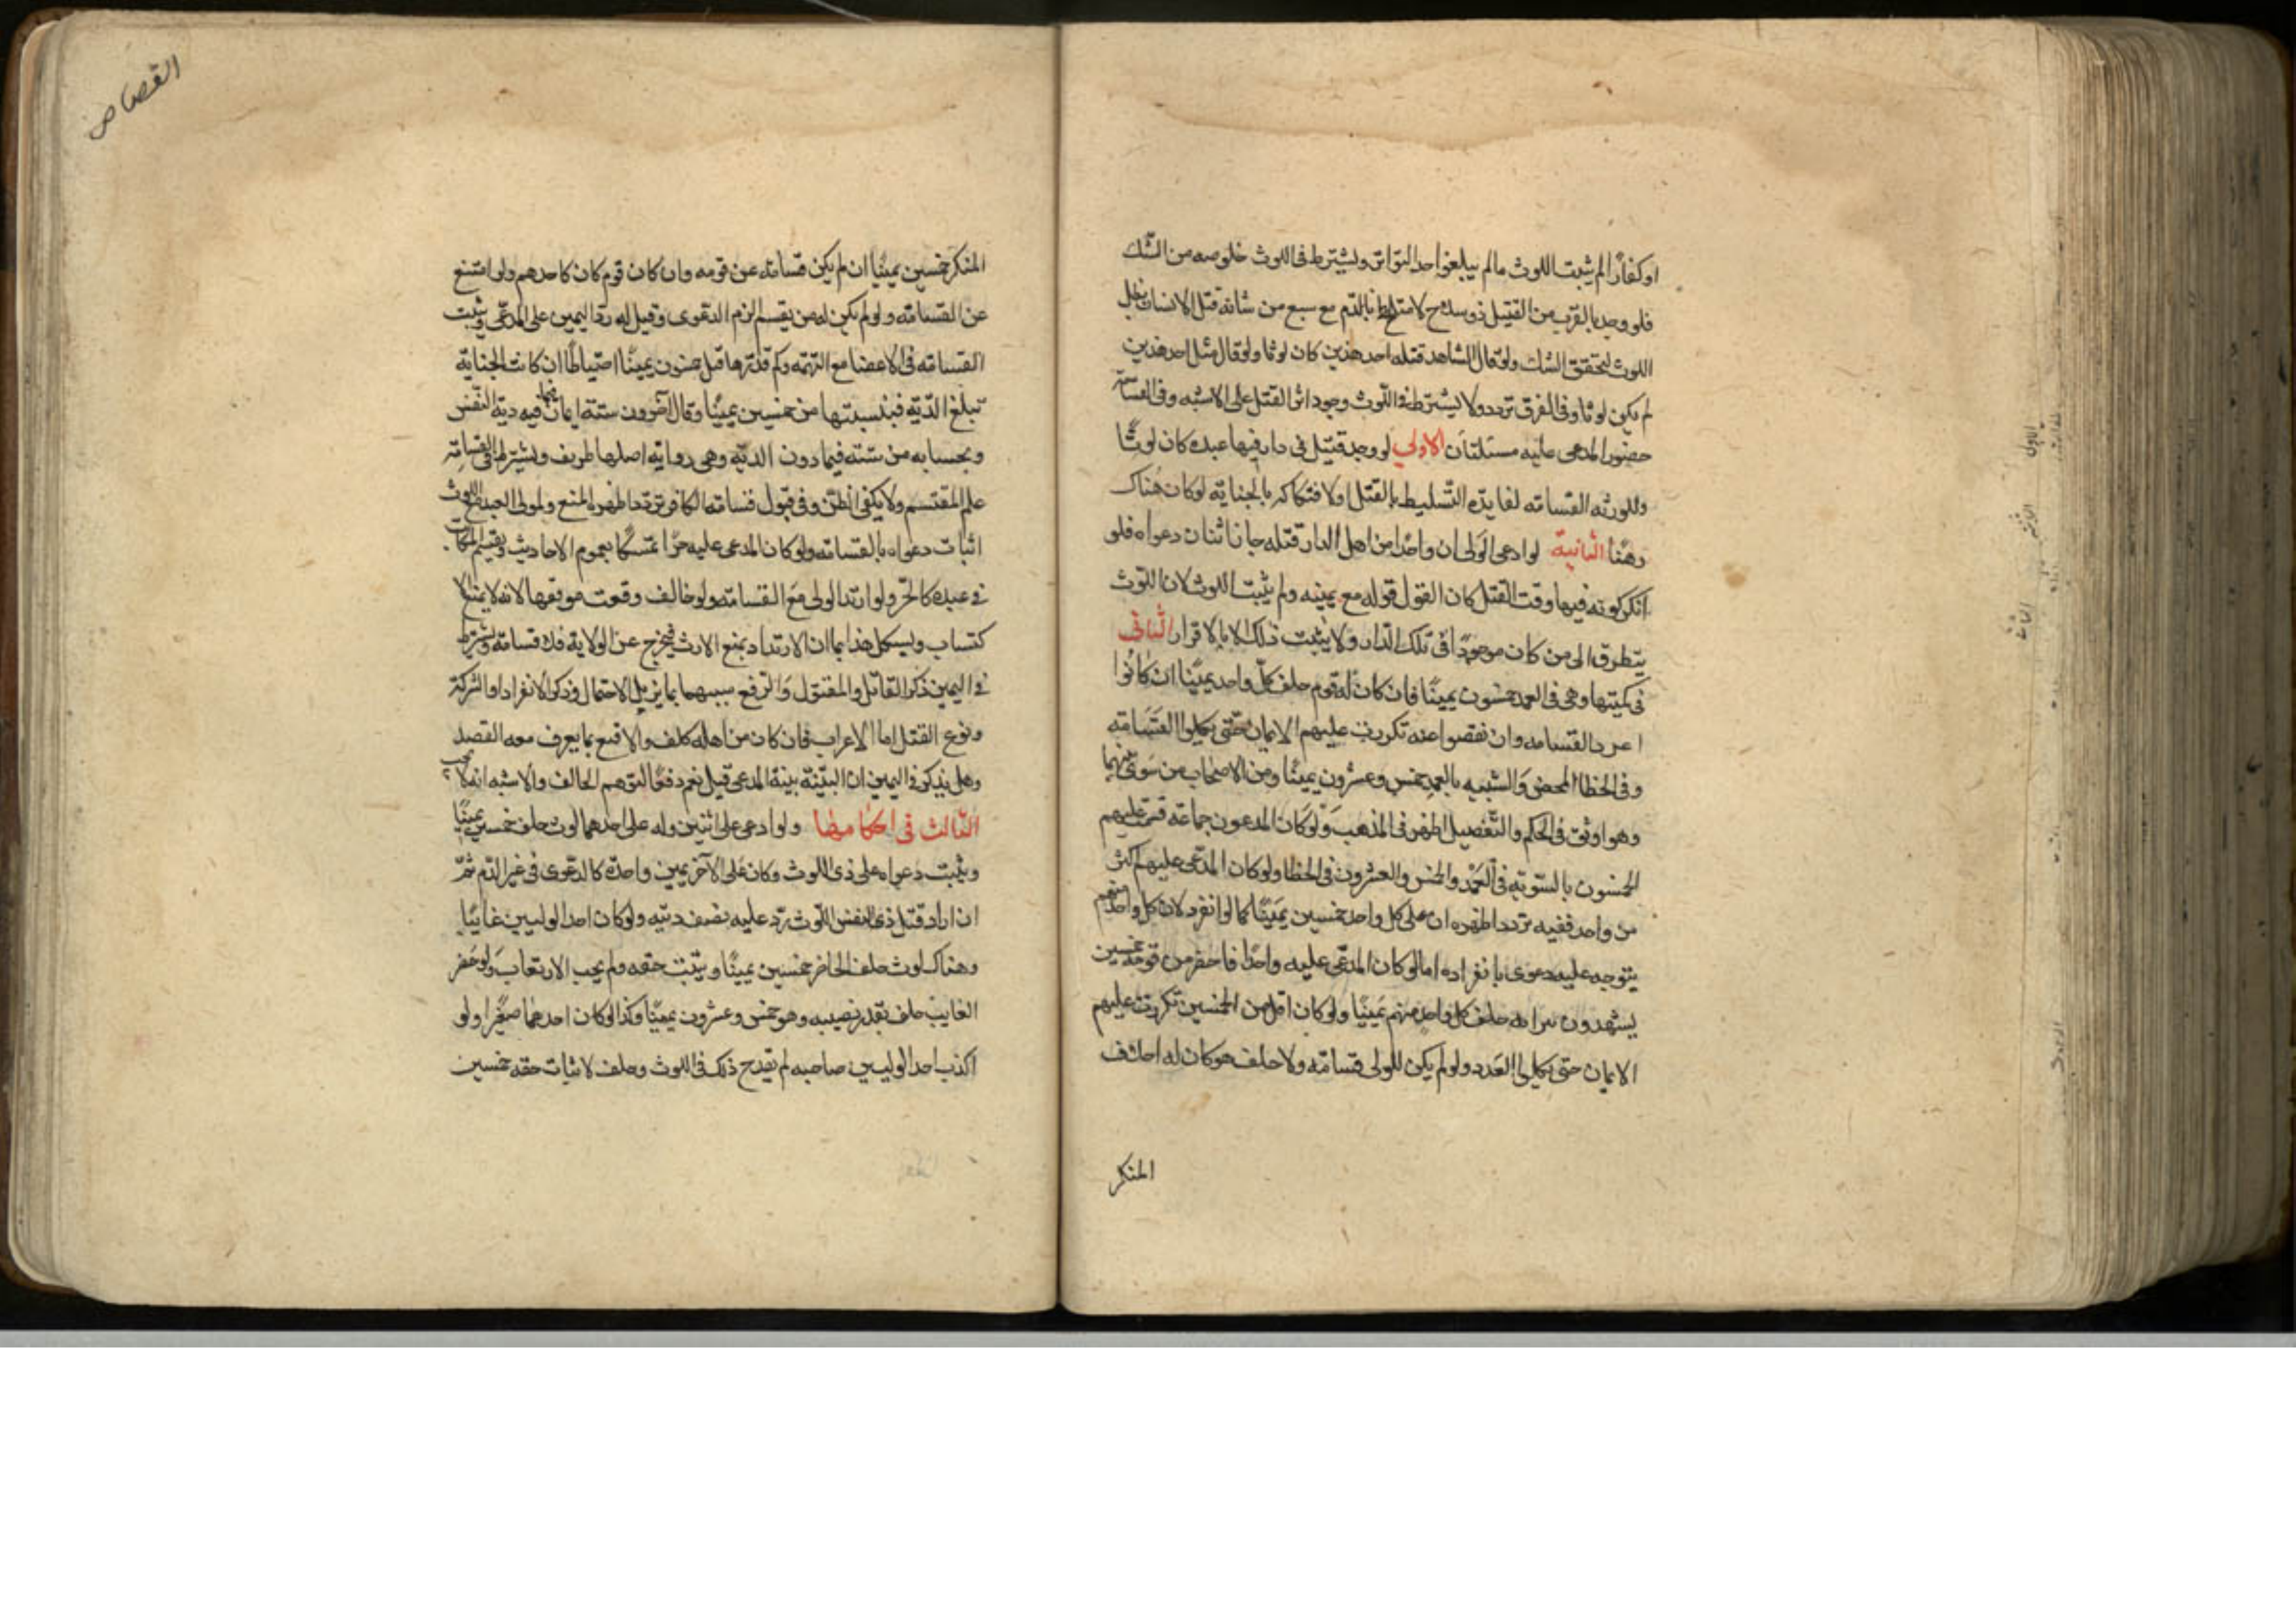 او كفارًا لم يثبت اللوث مالم يبلغوا حد التواتر ويشترط فى اللوث خلوصه من الشك
فلو وجد بالقرب من القتيل ذو سلاح متلطخ بالدم مع سبع من شانه قتل الانسان بطل
اللوث لتحقق الشك ولو قال الشاهد قتله احد هذين كان لوثا ولو قال قتل احد هذين
لم يكن لوثا وفى الفرق تردد ولا يشترط فى اللوث وجود اثر القتل على الاشبه وفى القسامة
حضور المدعى عليه مسئلتان الاولى لو وجد قتيل فى دار فيها عبده كان لوثًا
وللورثه القسامه لفايدة التسليط بالقتل او لافتكاكه بالجناية لو كان هناك
رهنًا الثانية لو ادعى الولى ان واحدا من اهل الدار قتله جاز اثبات دعواه فلو
انكر كونه فيها وقت القتل كان القول قوله مع يمينه ولم يثبت اللوث لان اللوث
يتطرق الى من كان موجودًا فى تلك الدار ولا يثبت ذلك الا بالاقرار الثانى
فى كميتها وهى فى العمد خمسون يمينًا فان كان له قوم حلف كل واحد يمينًا ان كانوا
القسامه وان نقصوا عنه تكررت عليهم الايمان حتى يكملوا القسامه
وفى الخطا المحض والشبيه بالعمد خمس وعشرون يمينًا ومن الاصحاب من سوى بينهما
وهو اوثق فى الحكم والتفصيل اظهر فى المذهب ولو كان المدعون جماعة قسمت عليهم
الخمسون بالسوية فى العمد والخمس والعشرون فى الخطا ولو كان المدعى عليهم اكثر
من واحد ففيه تردد اظهره ان على كل واحد خمسين يمينًا كما لو انفرد لان كل واحد منهم
يتوجه عليه دعوى بانفراده اما لو كان المدعى عليه واحدًا فاحضر من قومه خمسين
يشهدون حلف كل واحد منهم يمينًا ولو كان اقل من الخمسين تكررت عليهم
الايمان حتى يكملوا العدد ولو لم يكن للولى قسامة ولا حلف هو كان له احلاف
المنكر
القصاص
المنكر خمسين يمينًا ان لم يكن قسامة عن قومه وان كان قوم كان كاحدهم ولو امتنع
عن القسامة ولو لم يكن له من يقسم لزم الدعوى وقيل له رد اليمين على المدعى ويثبت
القسامه فى الاعضا مع التهمه وكم قدرها قيل خمسون يمينًا احتياطًا ان كانت الجناية
تبلغ الدية فبنسبتها من خمسين يمينًا وقال آخرون ستة ايمان فيما فيه دية النفس
وبحسابه من ستة فيما دون الدية وهى رواية اصلها ظريف ويشترط فى القسامة
علم المقسم ولا يكفى الظن وفى قبول قسامة الكافر تردد اظهره المنع ولمولى العبد مع اللوث
اثبات دعواه بالقسامه ولو كان المدعى عليه حرًا تمسكًا بعموم الاحاديث ويقسم المكاتب
فى عبده كالحر ولو ارتد الولى مع القسامة ولو خالف وقعت موقعها لانه لا يمنع الا
كتساب ويشكل هذا بما ان الارتداد يمنع الارث فيخرج عن الولاية فلا قسامة ويشترط
فى اليمين ذكر القاتل والمقتول والرفع بما يزيل الاحتمال وذكر الانفراد او الشركة
ونوع القتل اما الاعراب فان كان من اهله كلف والا قنع بما يعرف معه القصد
وهل يذكر فى اليمين ان البينة بينة المدعى قيل نعم دفعًا لتوهم الحالف والاشبه انه لا يجب
الثالث فى احكامها ولو ادعى على اثنين وله على احدهما لوث حلف خمسين يمينًا
ويثبت دعواه على ذى اللوث وكان على الآخر يمين واحدة كالدعوى فى غير الدم ثم
ان اراد قتل ذى اللوث رد عليه نصف ديته ولو كان احد الوليين غائبًا
وهناك لوث حلف الحاضر خمسين يمينًا ويثبت حقه ولم يجب الارتقاب ولو حضر
الغايب حلف بقدر نصيبه وهو خمس وعشرون يمينًا وكذا لو كان احدهما صغيرا ولو
اكذب احد الوليين صاحبه لم يقدح ذلك فى اللوث وحلف لاثبات حقه خمسين